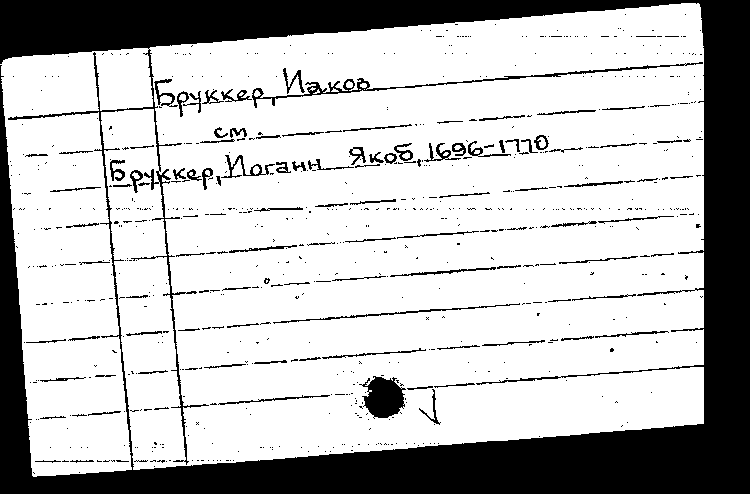 Бруккер, Иаков
см.
Бруккер, Иоганн Якоб, 1696-1770